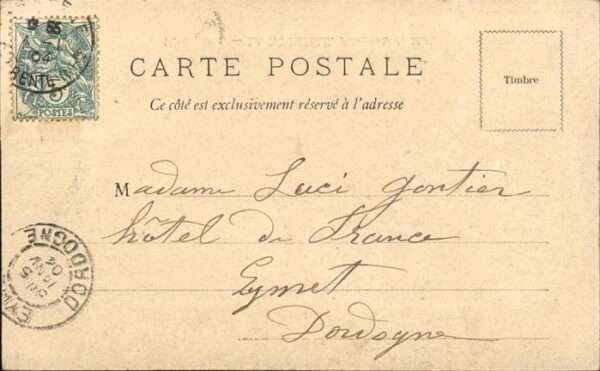 04
RENTE
5
POSTES
CARTE POSTALE
Ce côté est exclusivement réservé à l'adresse
Timbre
Madame Luci Gontier
hôtel de France
Eymet
Dordogne
EYM
DORDOGNE
5
JANV
04